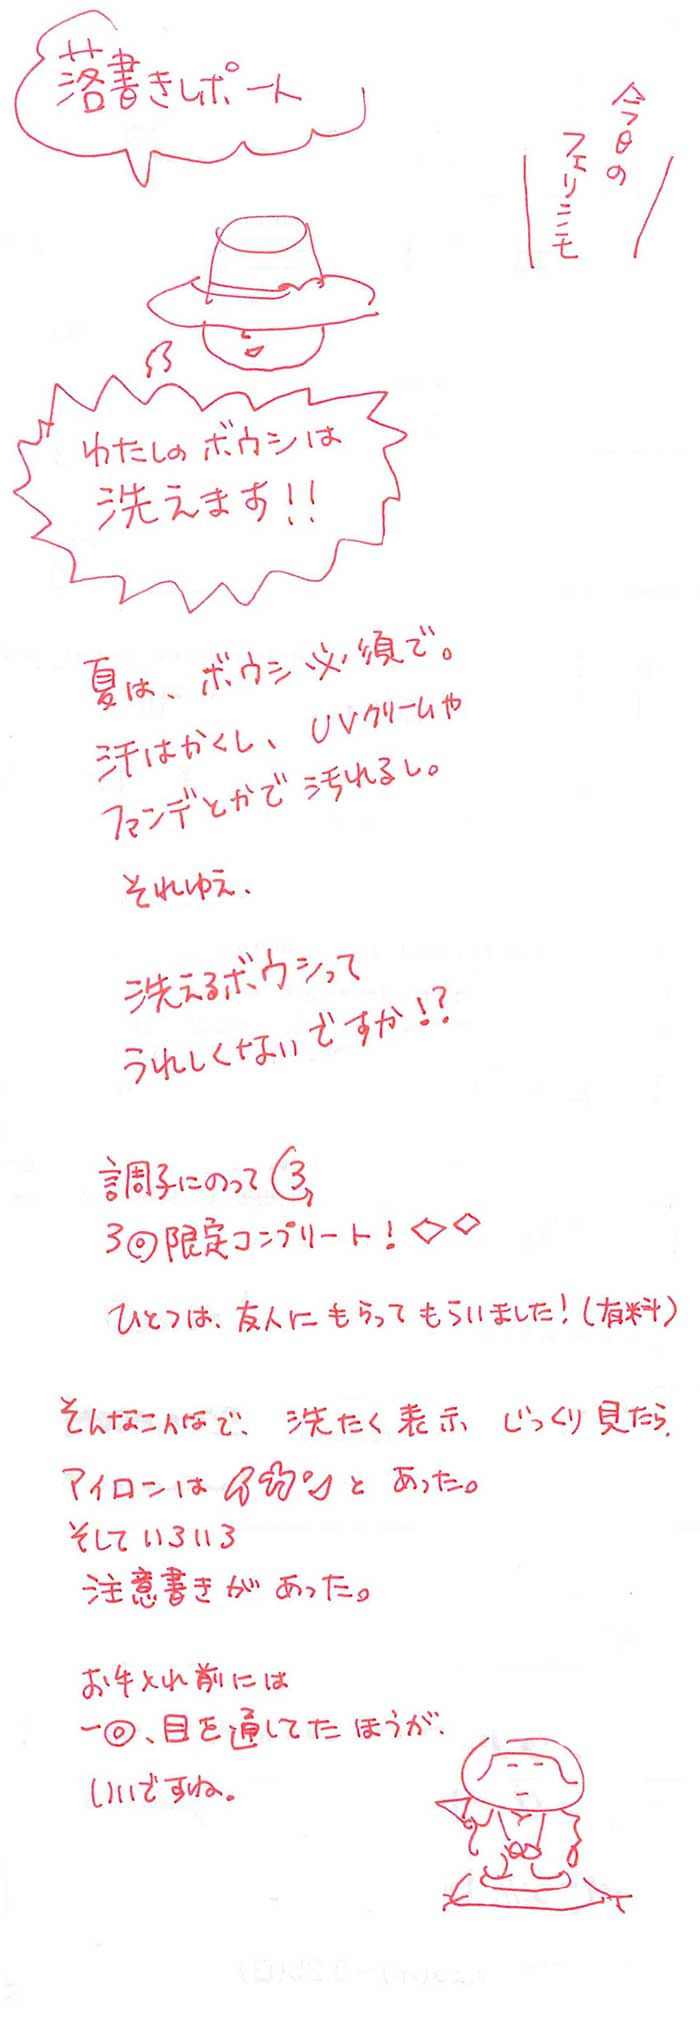 落書きレポート
今日の
フェリシモ
わたしのボウシは
洗えます!!
夏は、ボウシ必須で。
汗はかくし、UVクリームや
ファンデとかで汚れるし。
それゆえ、
洗えるボウシって
うれしくないですか!?
調子にのって③、
3回限定コンプリート!◇◇
ひとつは、友人にもらってもらいました!(有料)
そんなこんなで、洗たく表示 じっくり見たら、
アイロンは と あった。
そしていろいろ
注意書きがあった。
お手入れ前には
一回、目を通してたほうが、
いいですね。